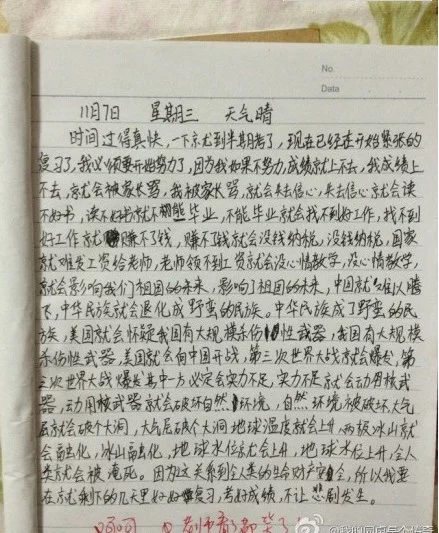 No.
Data
11月7日 星期三 天气晴
时间过得真快,一下就到半期考了,现在已经在开始紧张的
复习了,我必须要开始努力了,因为我如果不努力,成绩就上不去,我成绩上
不去,就会被家长骂,我被家长骂,就会失去信心,失去信心就会读
不好书,读不好书就不能毕业,不能毕业就会找不到好工作,找不到
好工作就赚不了钱,赚不了钱就会没钱纳税,没钱纳税,国家
就难发工资给老师,老师领不到工资就会没心情教学,没心情教学,
就会影响我们祖国的未来,影响了祖国的未来,中国就难以腾
飞,中华民族就会退化成野蛮的民族。中华民族成了野蛮的民
族,美国就会怀疑我国有大规模杀伤性武器,我国有大规模
杀伤性武器,美国就会向中国开战,第三次世界大战就会爆发,第
三次世界大战爆发其中一方必定会实力不足,实力不足就会动用核武
器,动用核武器就会破坏自然环境,自然环境被破坏,大气
层就会破个大洞,大气层破个大洞地球温度就会上升,两极冰山就
会融化,冰山融化,地球水位就会上升,地球水位上升,全人
类就会被淹死。因为这关系到全人类的生命财产安全,所以我要
在就剩下的几天里好好复习,考好成绩,不让悲剧发生。
呵呵 老师看了都笑了